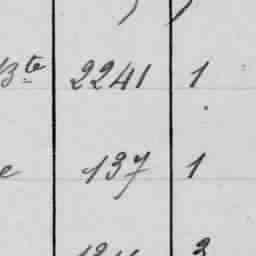 Bte 2241 1
e 137 1
2